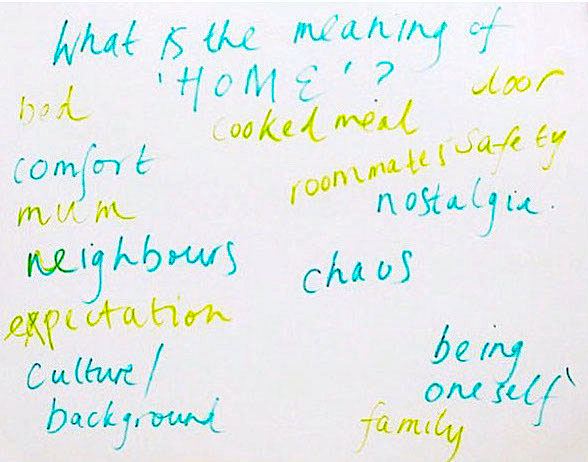 What is the meaning of
'HOME'?
bed
cooked meal
door
comfort
roommates
safety
mum
nostalgia.
neighbours
chaos
expectation
culture/
background
being
oneself
family